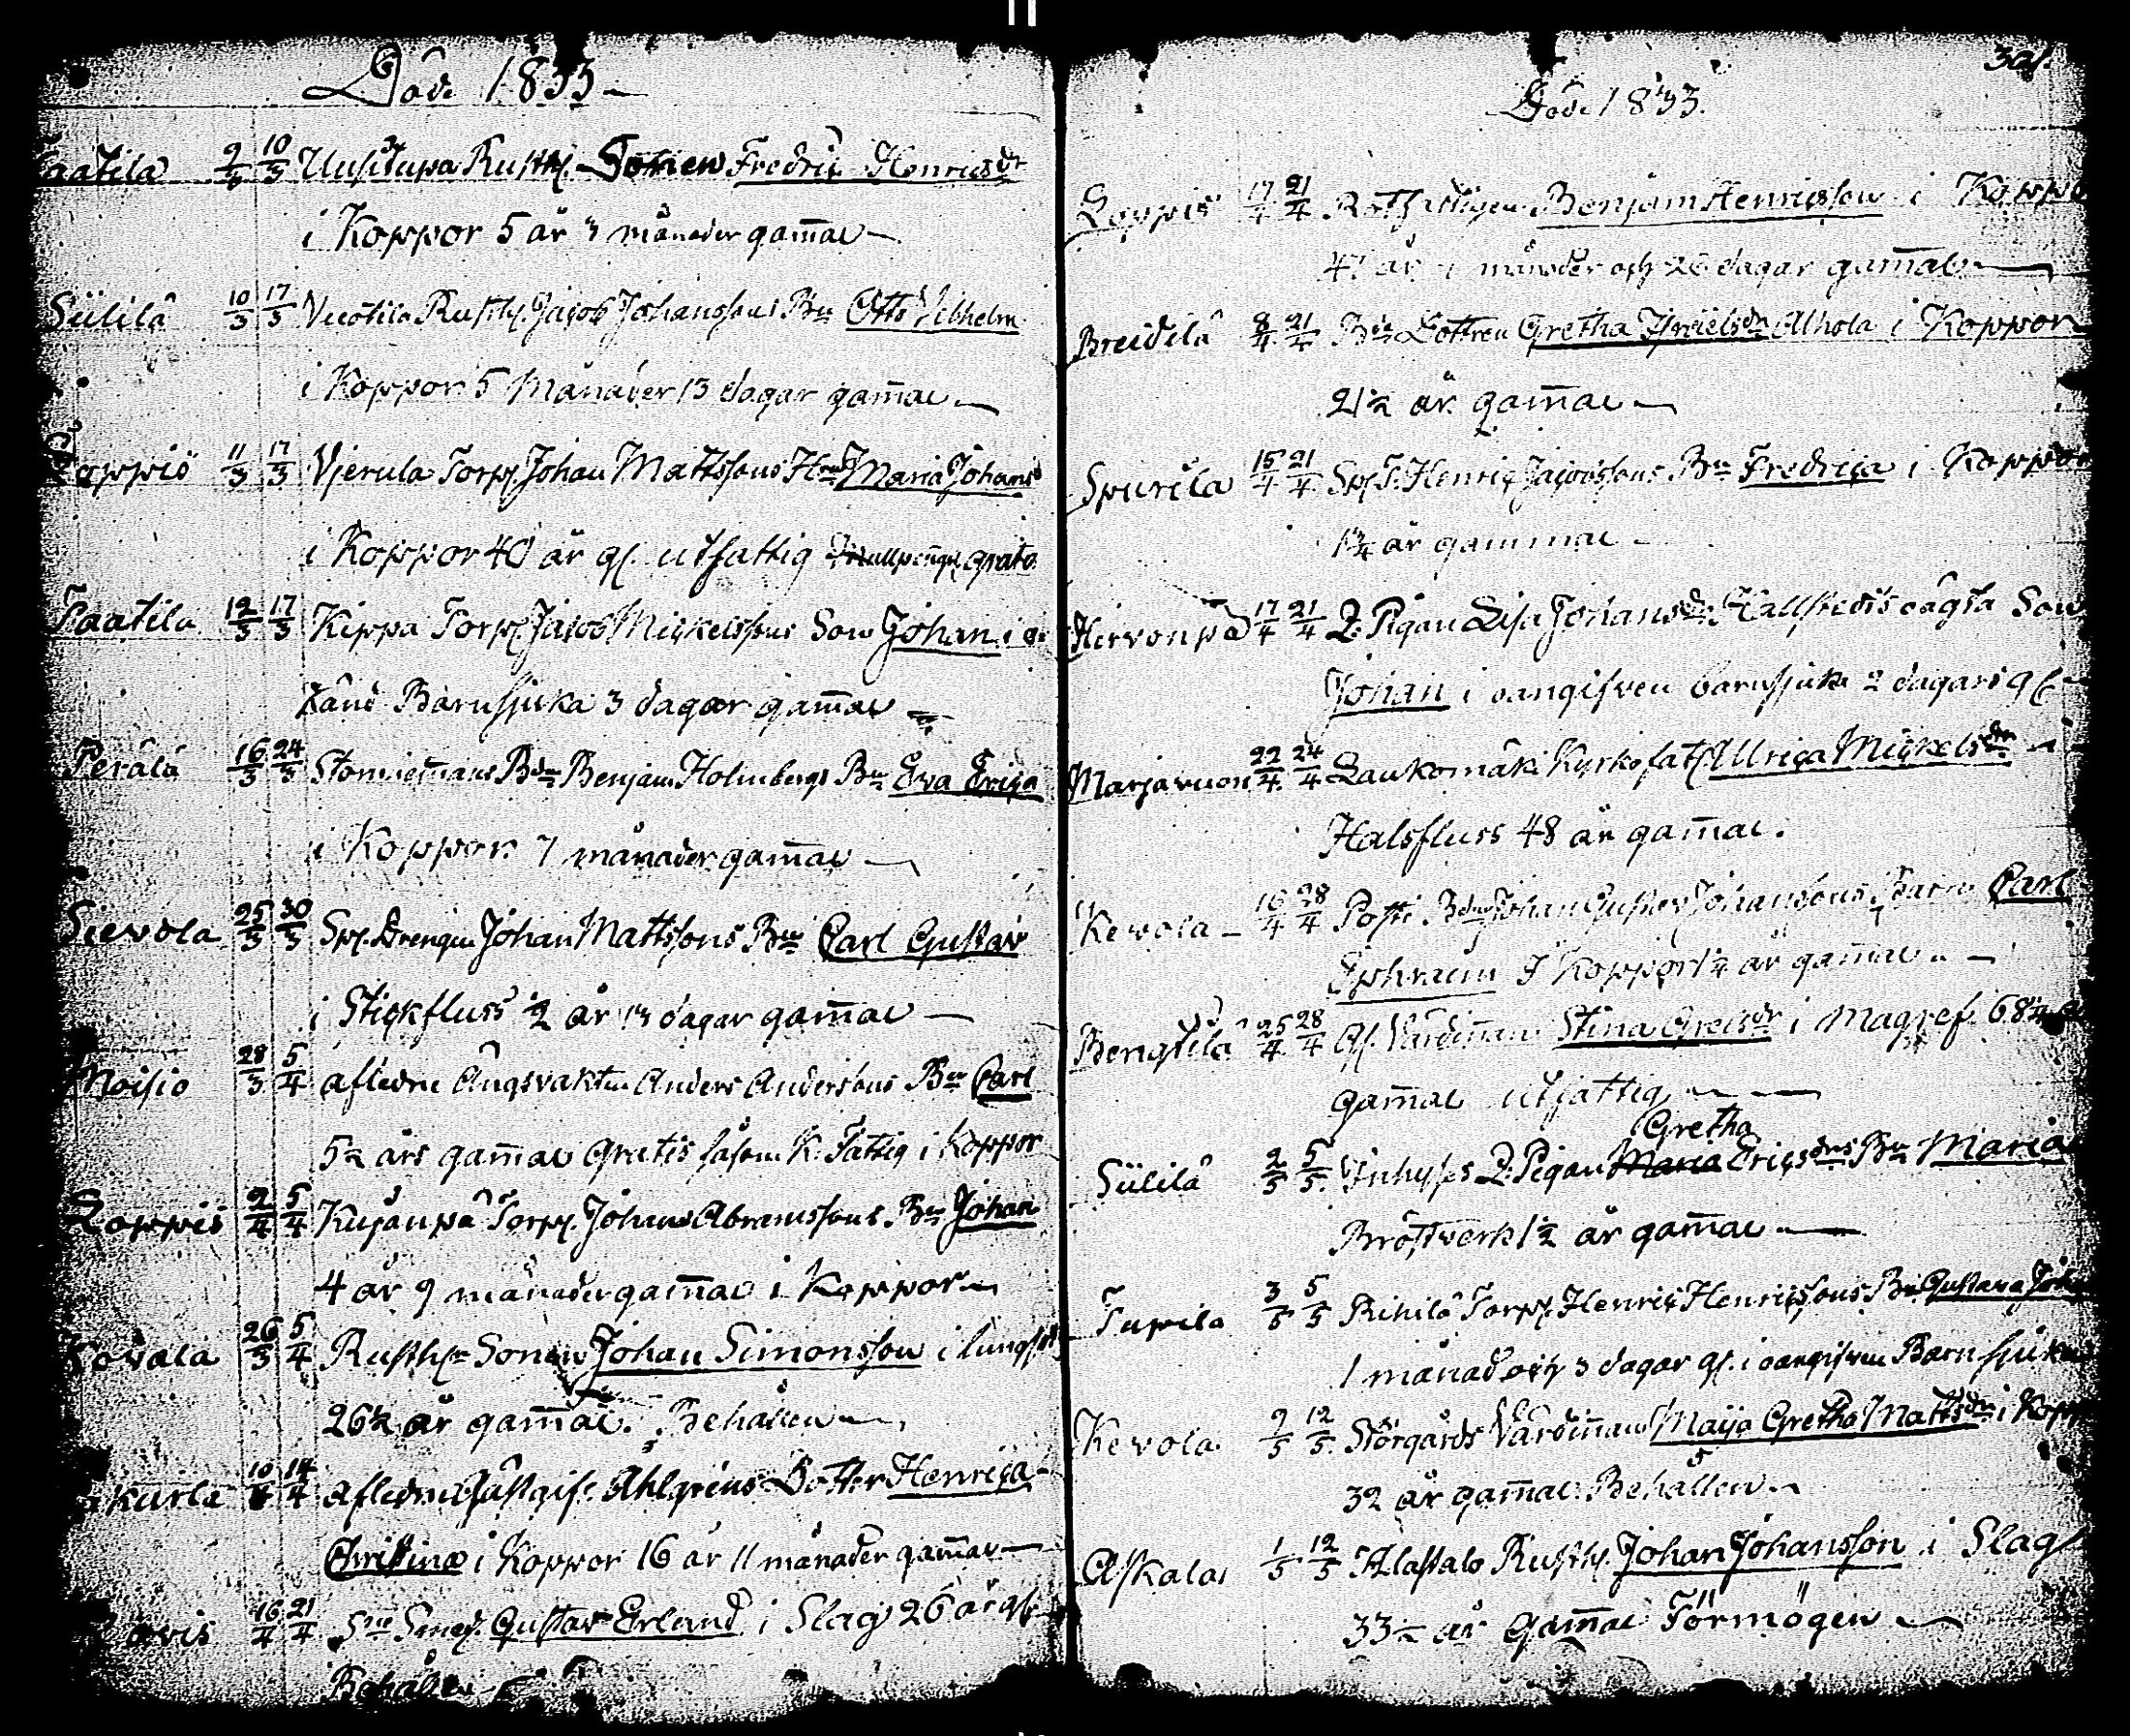 Döde 1833
Paatila 9/3 10/3 Uusitupa Rusth. Sonen Fredric Henricsdr
i Koppor 5 år 3 månader gam̄al
Siililä 10/3 17/3 Rusth. Jacob Johanssons Bn Otto Vilhelm
i Koppor 5 Månader 13 dagar gam̄al
Loppis 11/3 17/3 Vjerula Torp. Johan Mattssons Hu Maria Johans
i Koppor 40 år gl. utfattig gratis
Paatila 12/3 17/3 Kippa Torp. Jacob Mickelssons Son Johan i o
känd Barnsjuka 3 dagar gam̄al
Perälä 16/3 24/3 Bdn Benjam. Holmbergs Bn Eva Erica
i Koppor 7 månader gam̄al
Sievola 25/3 30/3 Sp. Drengen Johan Mattssons Bn Carl Gustav
i Stickfluss ½ år 13 dagar gam̄al
Moisio 28/3 5/4 afledne Ängsvakten Anders Anderssons Bn Carl
5½ års gam̄al Gratis såsom K. Fattig i Koppor
Loppis 2/4 5/4 Kujanpä Torp. Johan Abramssons Bn Johan
4 år 9 månader gam̄al i Koppor
26/3 5/4 Rusth. Sonen Johan Simonsson i lungsot
26½ år gam̄al. Behållen
10/4 14/4 afledne Gästgif. Ahlgréns Dotter Henrica
Christina i Koppor 16 år 11 månader gam̄al
16/4 21/4 Smed. Gustav Erland i Slag 26 år gl.
Behållen
321.
Döde 1833.
Loppis 17/4 21/4 Rothfattigen Benjam Henricsson i Koppo
47 år månader och 26 dagar gam̄al
Breidilä 8/4 21/4 Bdn Dottren Gretha Israelsdr Alhola i Koppor
21½ år gam̄al
Spurila 15/4 21/4 Sp. T. Henric Jacobssons Bn Fredrica i Koppor
1¾ år gammal
Hirvonpä 17/4 21/4 Q. Pigan Lisa Johansdr Hallstedts oägta Son
Johan i oangifven barnsjuka 2 dagars gl.
Marjavuori 22/4 24/4 Laukomäki Kyrkofat. Ulrica Mickelsdr
Halsfluss 48 år gam̄al.
Kevola 16/4 28/4 Posti Bdn Johan Gustav Johanssons Barn Carl
Ephraim i Koppor 1¼ år gam̄al
Bengtilä 25/4 28/4 Gl. Värdin̄an Stina Greisdr i Magref. 68¼
gam̄al utfattig
Siililä 2/5 5/5 Inhyses Q. Pigan Gretha Ericsdrs Bn Maria
Bröstverk 1½ år gam̄al
Tupila 3/5 5/5 Rihilä Torp. Henric Henricssons Bn Gustava Joha
1 månad och 3 dagar gl. i oangifven Barn sjuka
Kevola 9/5 12/5 Störgårds Värdin̄an Maija Gretha Mattsdr i Kopp
32 år gam̄al. Behållen
Askala 1/5 12/5 Alastalo Rusth. Johan Johansson i Slag
33½ år gam̄al Förmögen